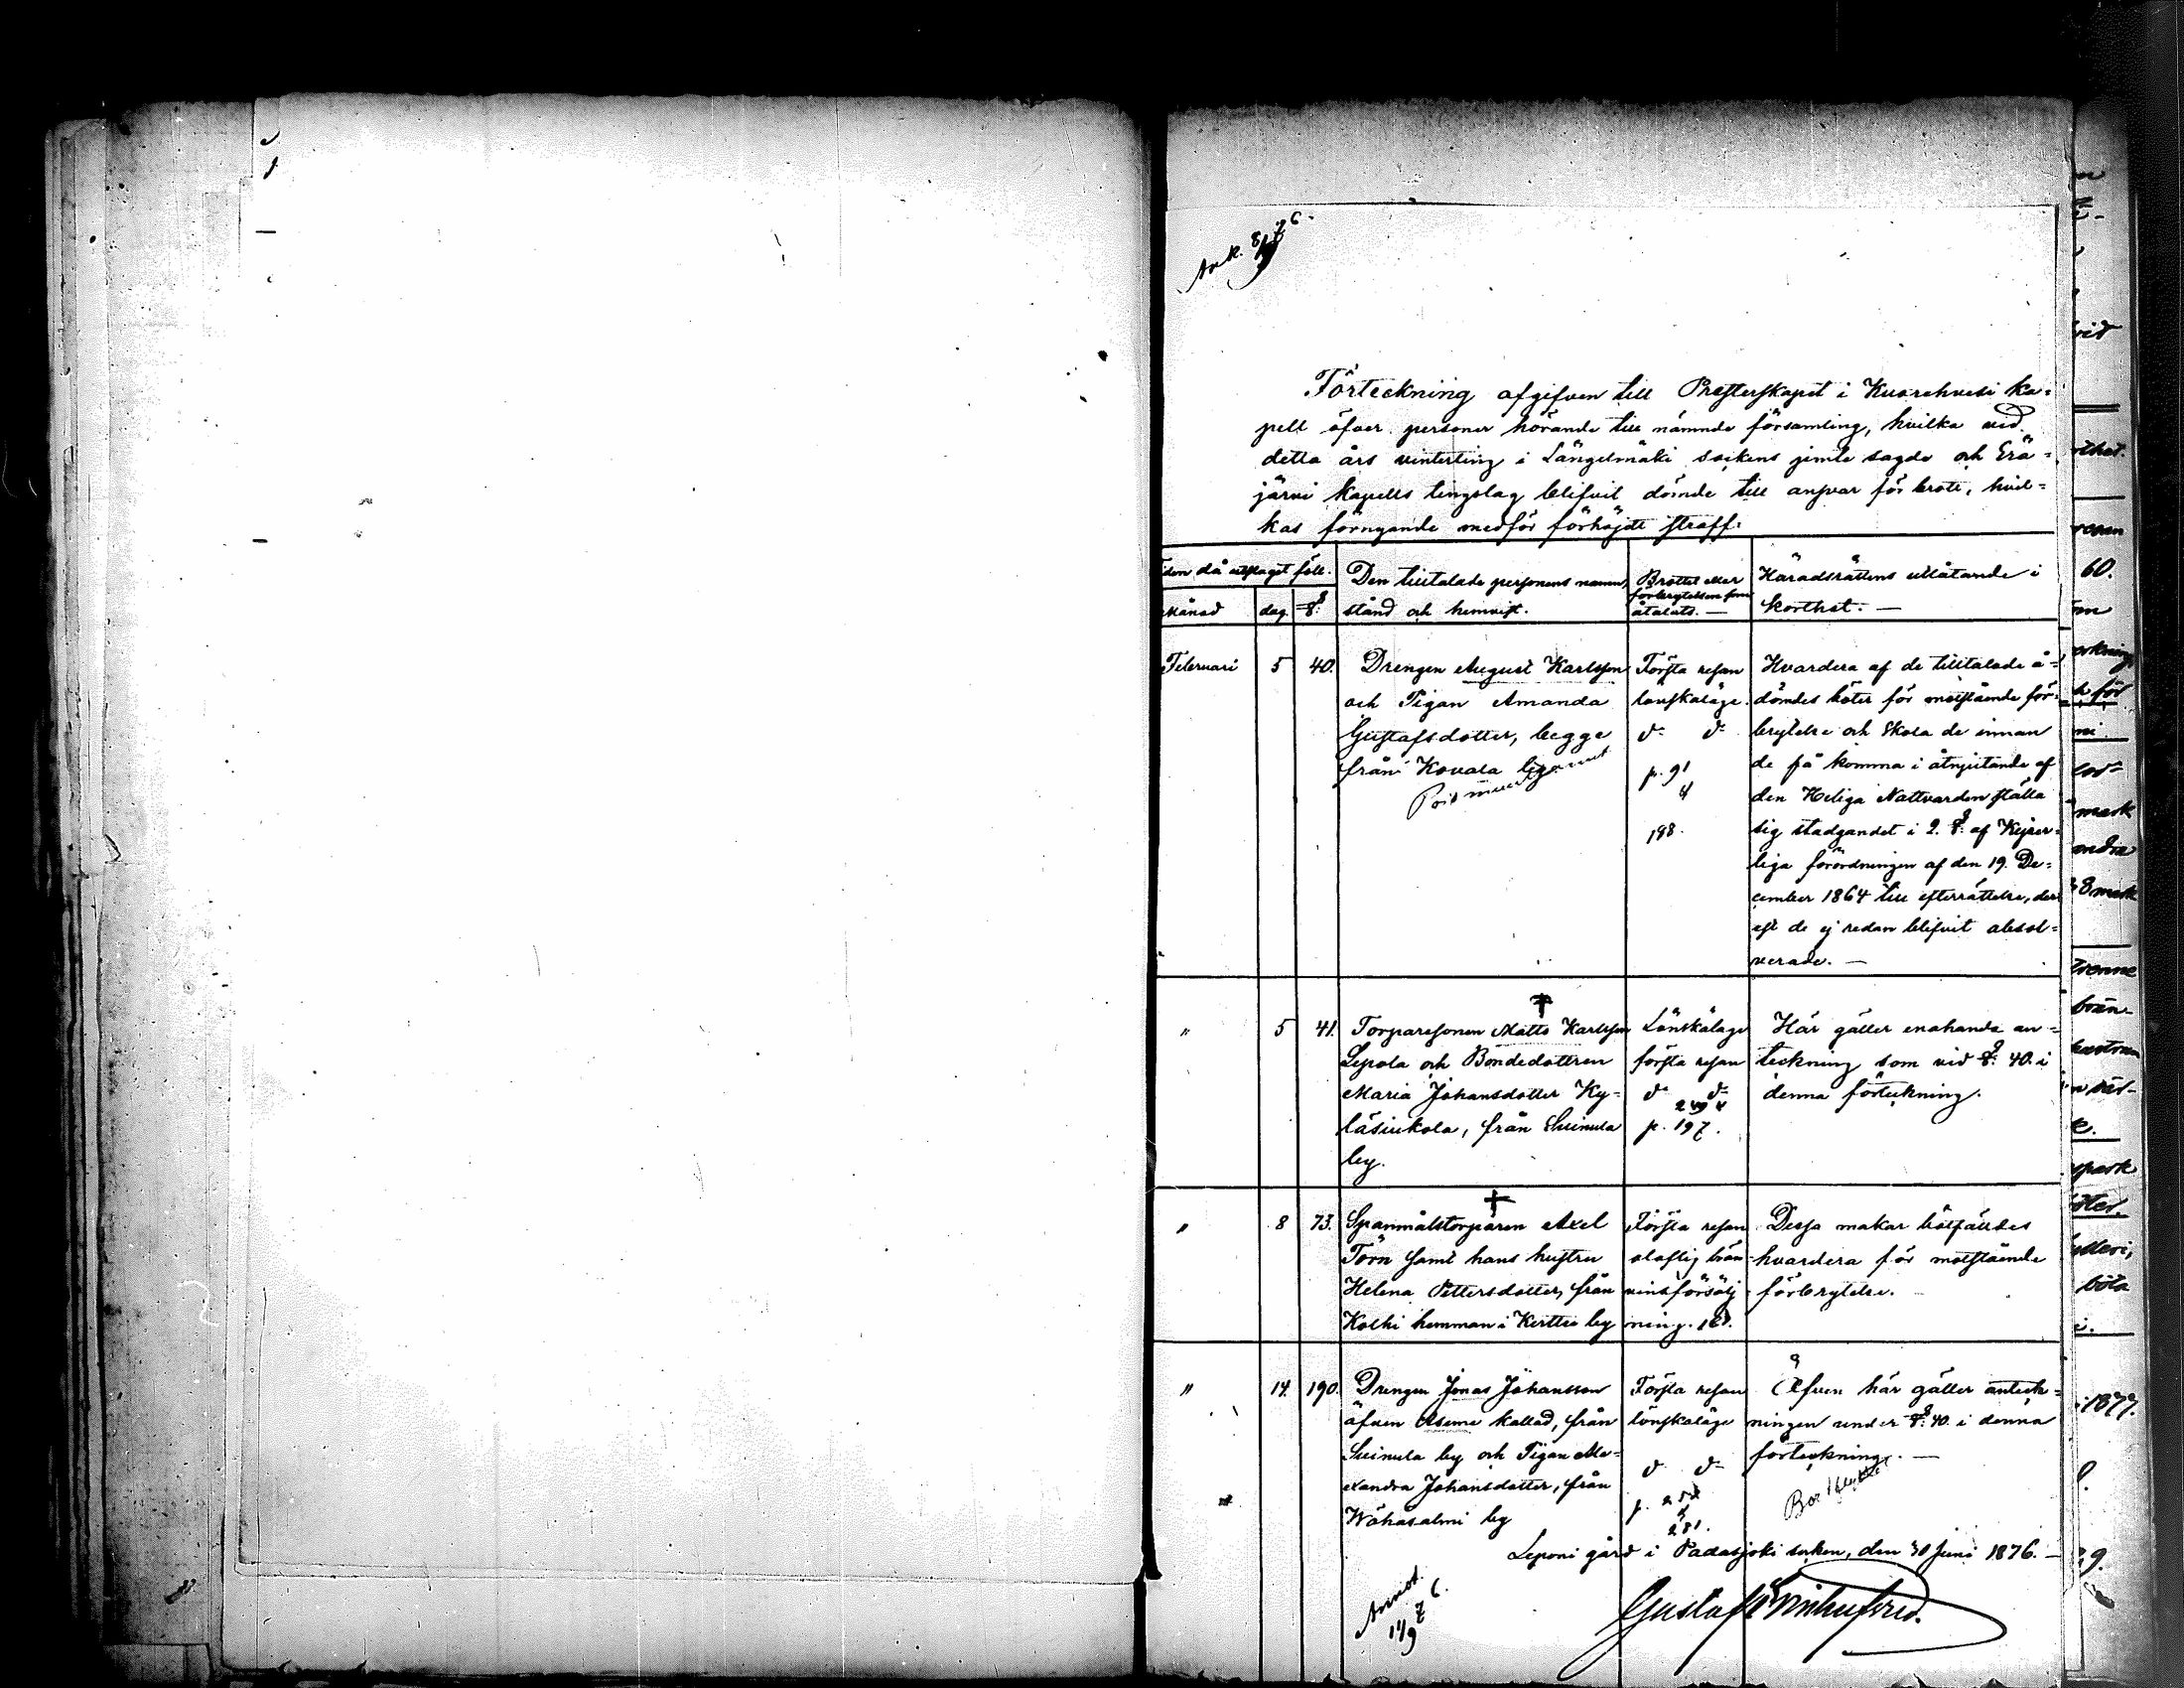 Ank. 8/9 76.
Förteckning afgifven till Presterskapet i Kuorehvesi ka-
pell öfver personer hörande till nämnde församling, hvilka vid
detta års vinterting i Längelmäki sockens jemte sagde och Erä-
järvi kapells tingslag blifvit dömde till ansvar för brott, hvil-
kas förnyande medför förhöjdt straff.
Tiden då utslaget föll.
Månad
dag
§:
Den tilltalade personens namn,
stånd och hemvist.
Brottet eller
förbrytelsen som
åtalats. —
Häradsrättens utlåtande i
korthet. —
Februari
5
40.
Drengen August Karlsson
och Pigan Amanda
Gustafsdotter, begge
från Kovala by.
Första resan
lönskaläge.
d:o d:o
p. 91
4
198.
Hvardera af de tilltalade å-
dömdes böter för motstående för-
brytelse och skola de innan
de få komma i åtnjutande af
den Heliga Nattvarden ställa
sig stadgandet i 2. §: af Kejser-
liga förordningen af den 19. De-
cember 1864 till efterrättelse, der-
est de ej redan blifvit absol-
verade. —
"
5
41.
Torparesonen Matts Karlsson
Lepola och Bondedottren
Maria Johansdotter Ky-
läsiukola, från Suinula
by.
Lönskaläge
första resan
d:o d:o
249 4
p. 197.
Här gäller enahanda an-
teckning som vid §: 40. i
denna förteckning.
"
8
73.
Spanmålstorparen Axel
Törn samt hans hustru
Helena Pettersdotter, från
Kolhi hemman i Kerttee by
Första resan
olaflig brän-
vinsförsälj-
ning.
Dessa makar bötfälldes
hvardera för motstående
förbrytelse.
"
14.
190.
Drengen Jonas Johansson
äfven Aseme kallad, från
Suinula by och Pigan Ale-
xandra Johansdotter, från
Wähäsalmi by
Första resan
lönskaläge
d:o d:o
p. 252
4
281.
Äfven här gäller anteck-
ningen under §: 40. i denna
förteckning. —
Leponi gård i Padasjoki socken, den 30 Juni 1876. —
Annot.
11/9 76.
Gustaf Svinhufvud.